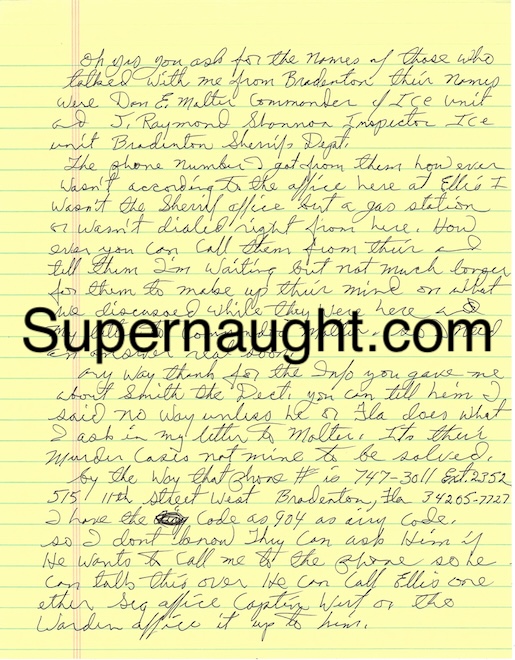 Oh yes you ask for the names of those who
talked with me from Bradenton their names
were Dan E. Molter Commander of Ice unit
and J. Raymond Shannon Inspector Ice
unit Bradenton Sheriffs Dept.
The phone number I got from them how ever
wasn't according to the office here at Ellis I
wasn't the Sherrif office but a gas station
or wasn't dialed right from here. How
ever you can call them from their and
till them I'm waiting but not much longer
for them to make up their mind on what
we discussed while they were here and
Supernaught.com
my need
an answer real soon.
Any way thank for the Info you gave me
about Smith the Dect. you can till him I
said no way unless he or Fla does what
I ask in my letter to Molter. Its their
Murder Cases not mine to be solved.
by the way that phone # is 747-3011 Ext. 2352
515 11th street West Bradenton, Fla 34205-7727
I have the Code as 904 as airy code.
so I dont know They can ask Him if
He wants to call me to the phone so he
can talk this over He can call Ellis one
ether Seg office Captin West or the
Warden office it up to him.